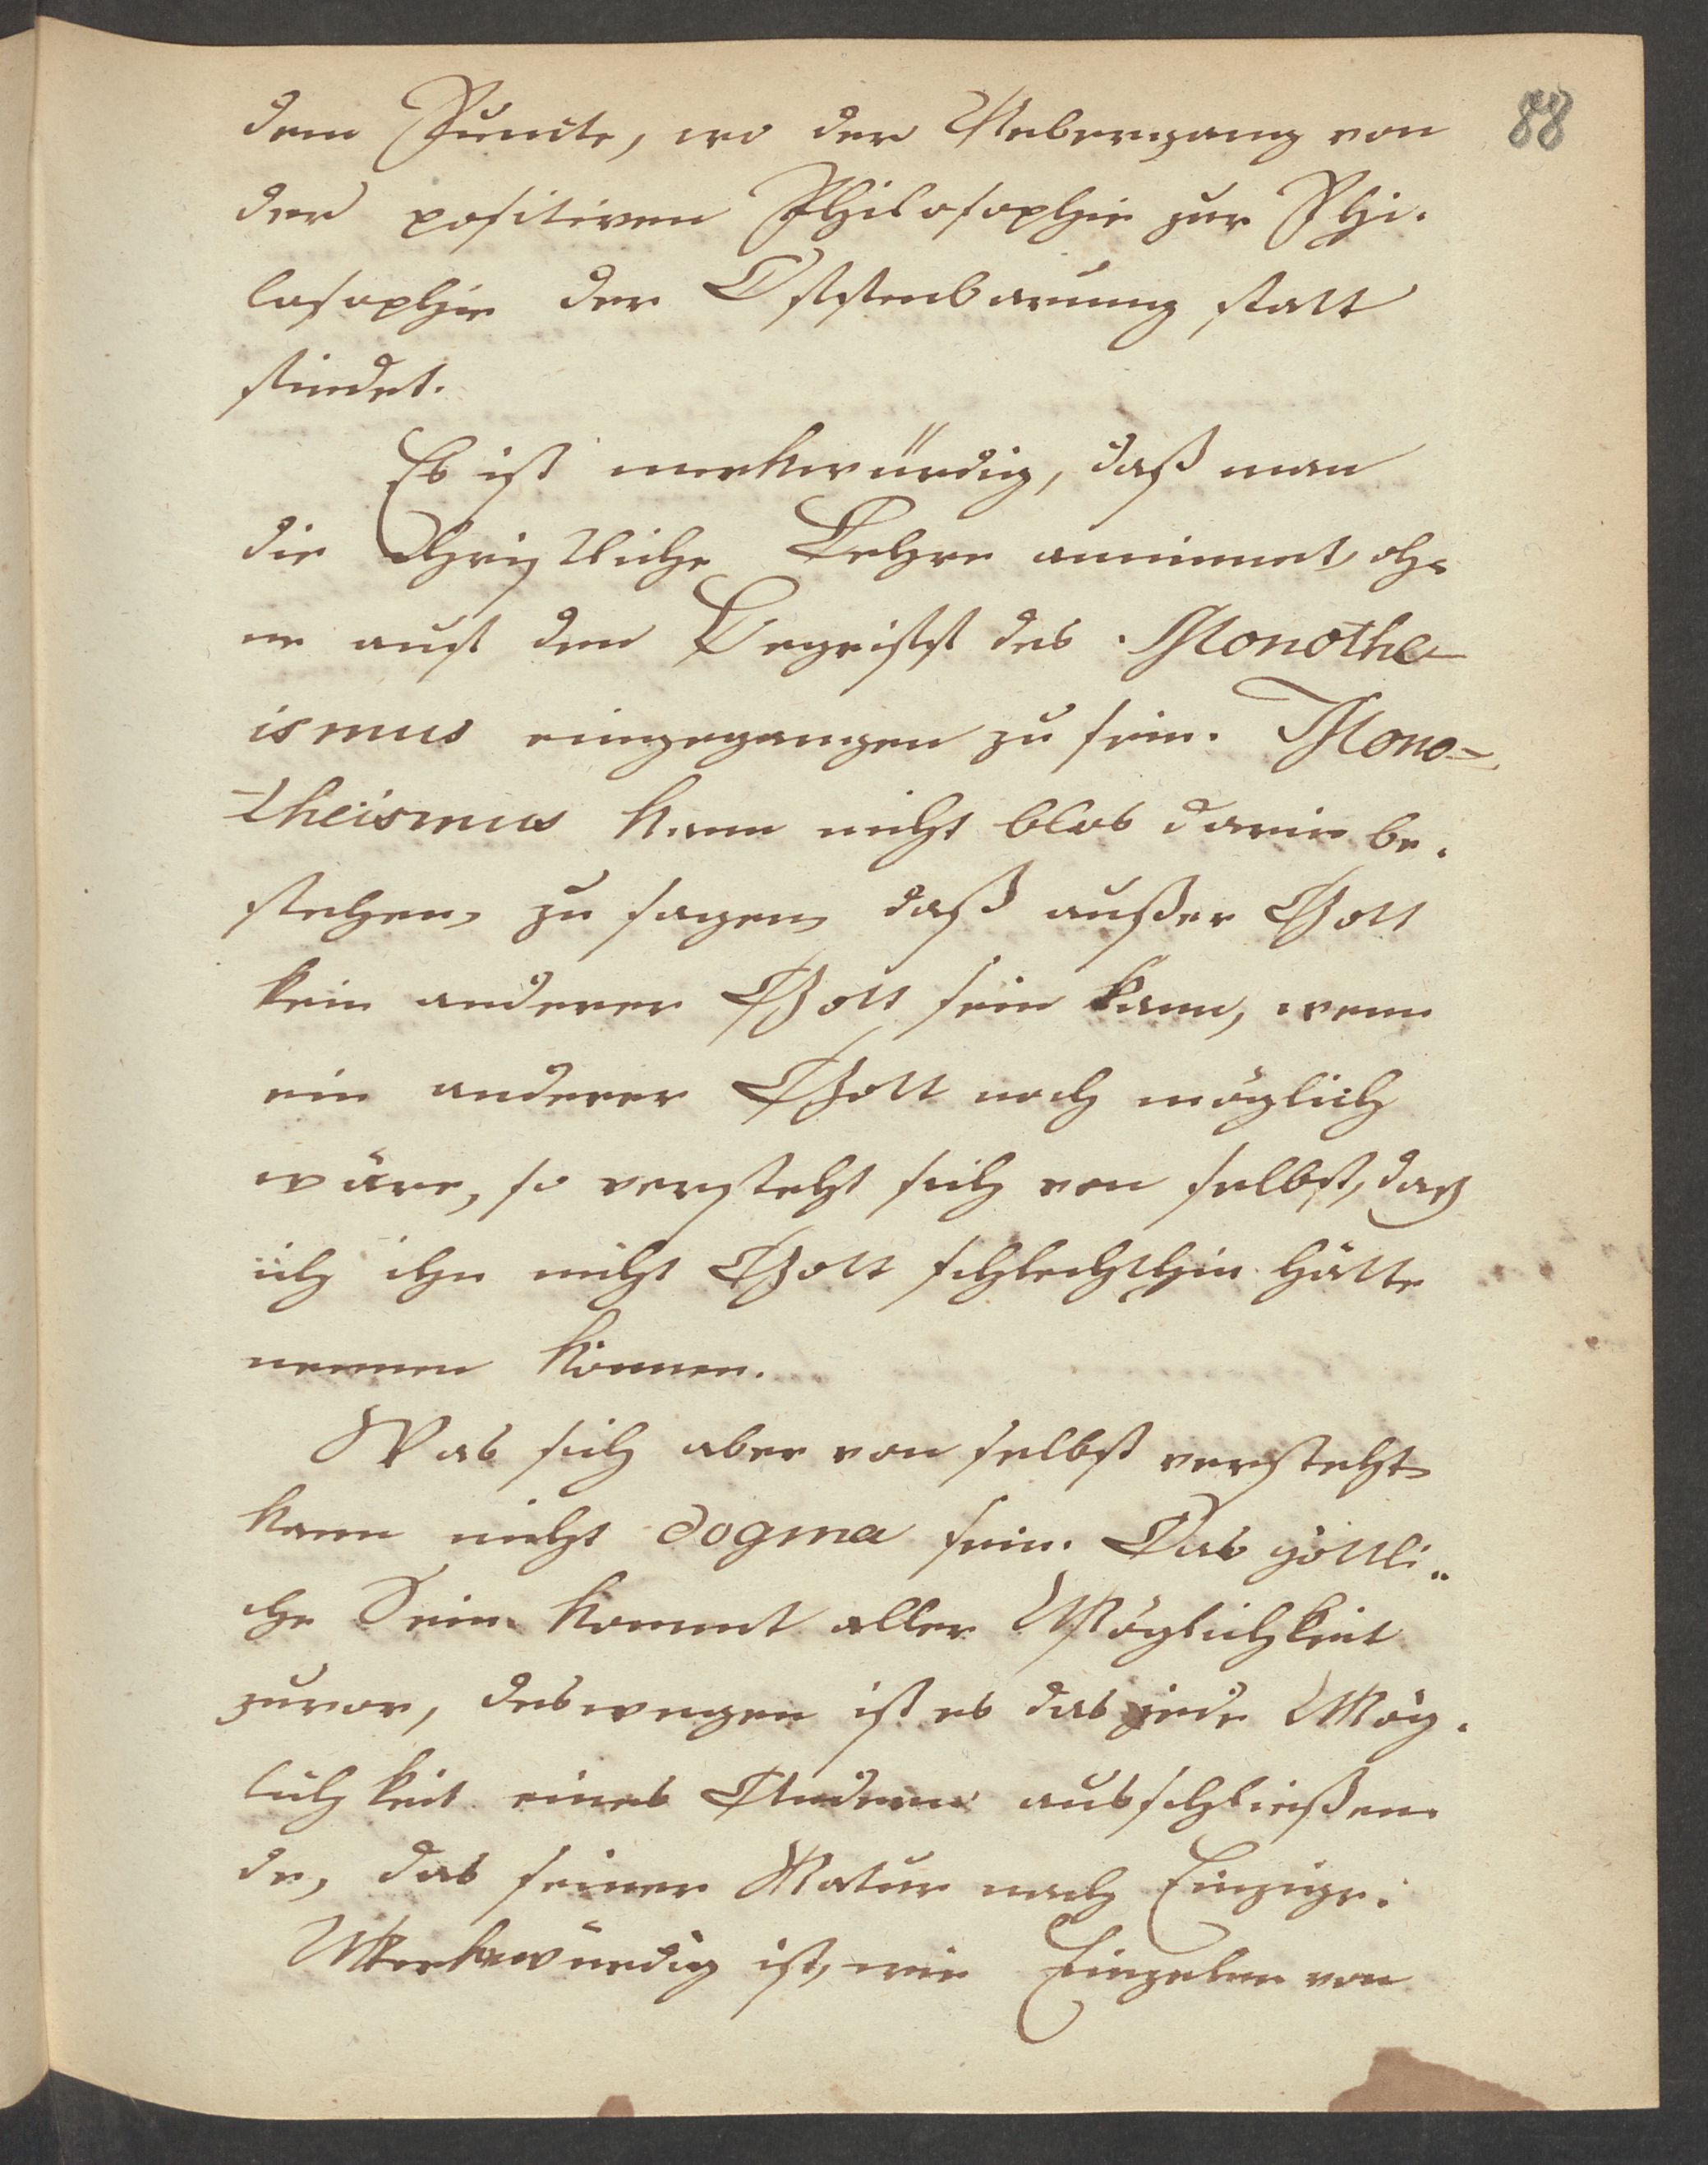 88
dem Puncte, wo der Uebergang von
der positiven Philosophie zur Phi-
losophie der Offenbarung statt
findet.
Es ist merkwürdig, daß man
die christliche Lehre annimmt, oh-
ne auf den Begriff des Monothe-
ismus eingegangen zu sein. Mono-
theismus kann nicht blos darin be-
stehen, zu sagen, daß außer Gott
kein anderer Gott sein kann, wenn
ein anderer Gott noch möglich
wäre, so versteht sich von selbst, daß
ich ihn nicht Gott schlechthin hätte
nennen können.
Was sich aber von selbst versteht,
kann nicht dogma sein. Das göttli-
che Sein kommt aller Möglichkeit
zuvor, deswegen ist es das jede Mög-
lichkeit eines Andern ausschließen-
de, das seiner Natur nach Einzige.
Merkwürdig ist, wie Einzelne von